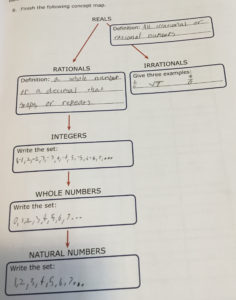 8. Finish the following concept map.
REALS
Definition: All irrational or
rational numbers
RATIONALS
IRRATIONALS
Definition: a whole number
or a decimal that
stops or repeats
Give three examples:
INTEGERS
Write the set:
WHOLE NUMBERS
Write the set:
0, 1, 2, 3, 4, 5, 6, 7, ...
NATURAL NUMBERS
Write the set:
1, 2, 3, 4, 5, 6, 7, ...